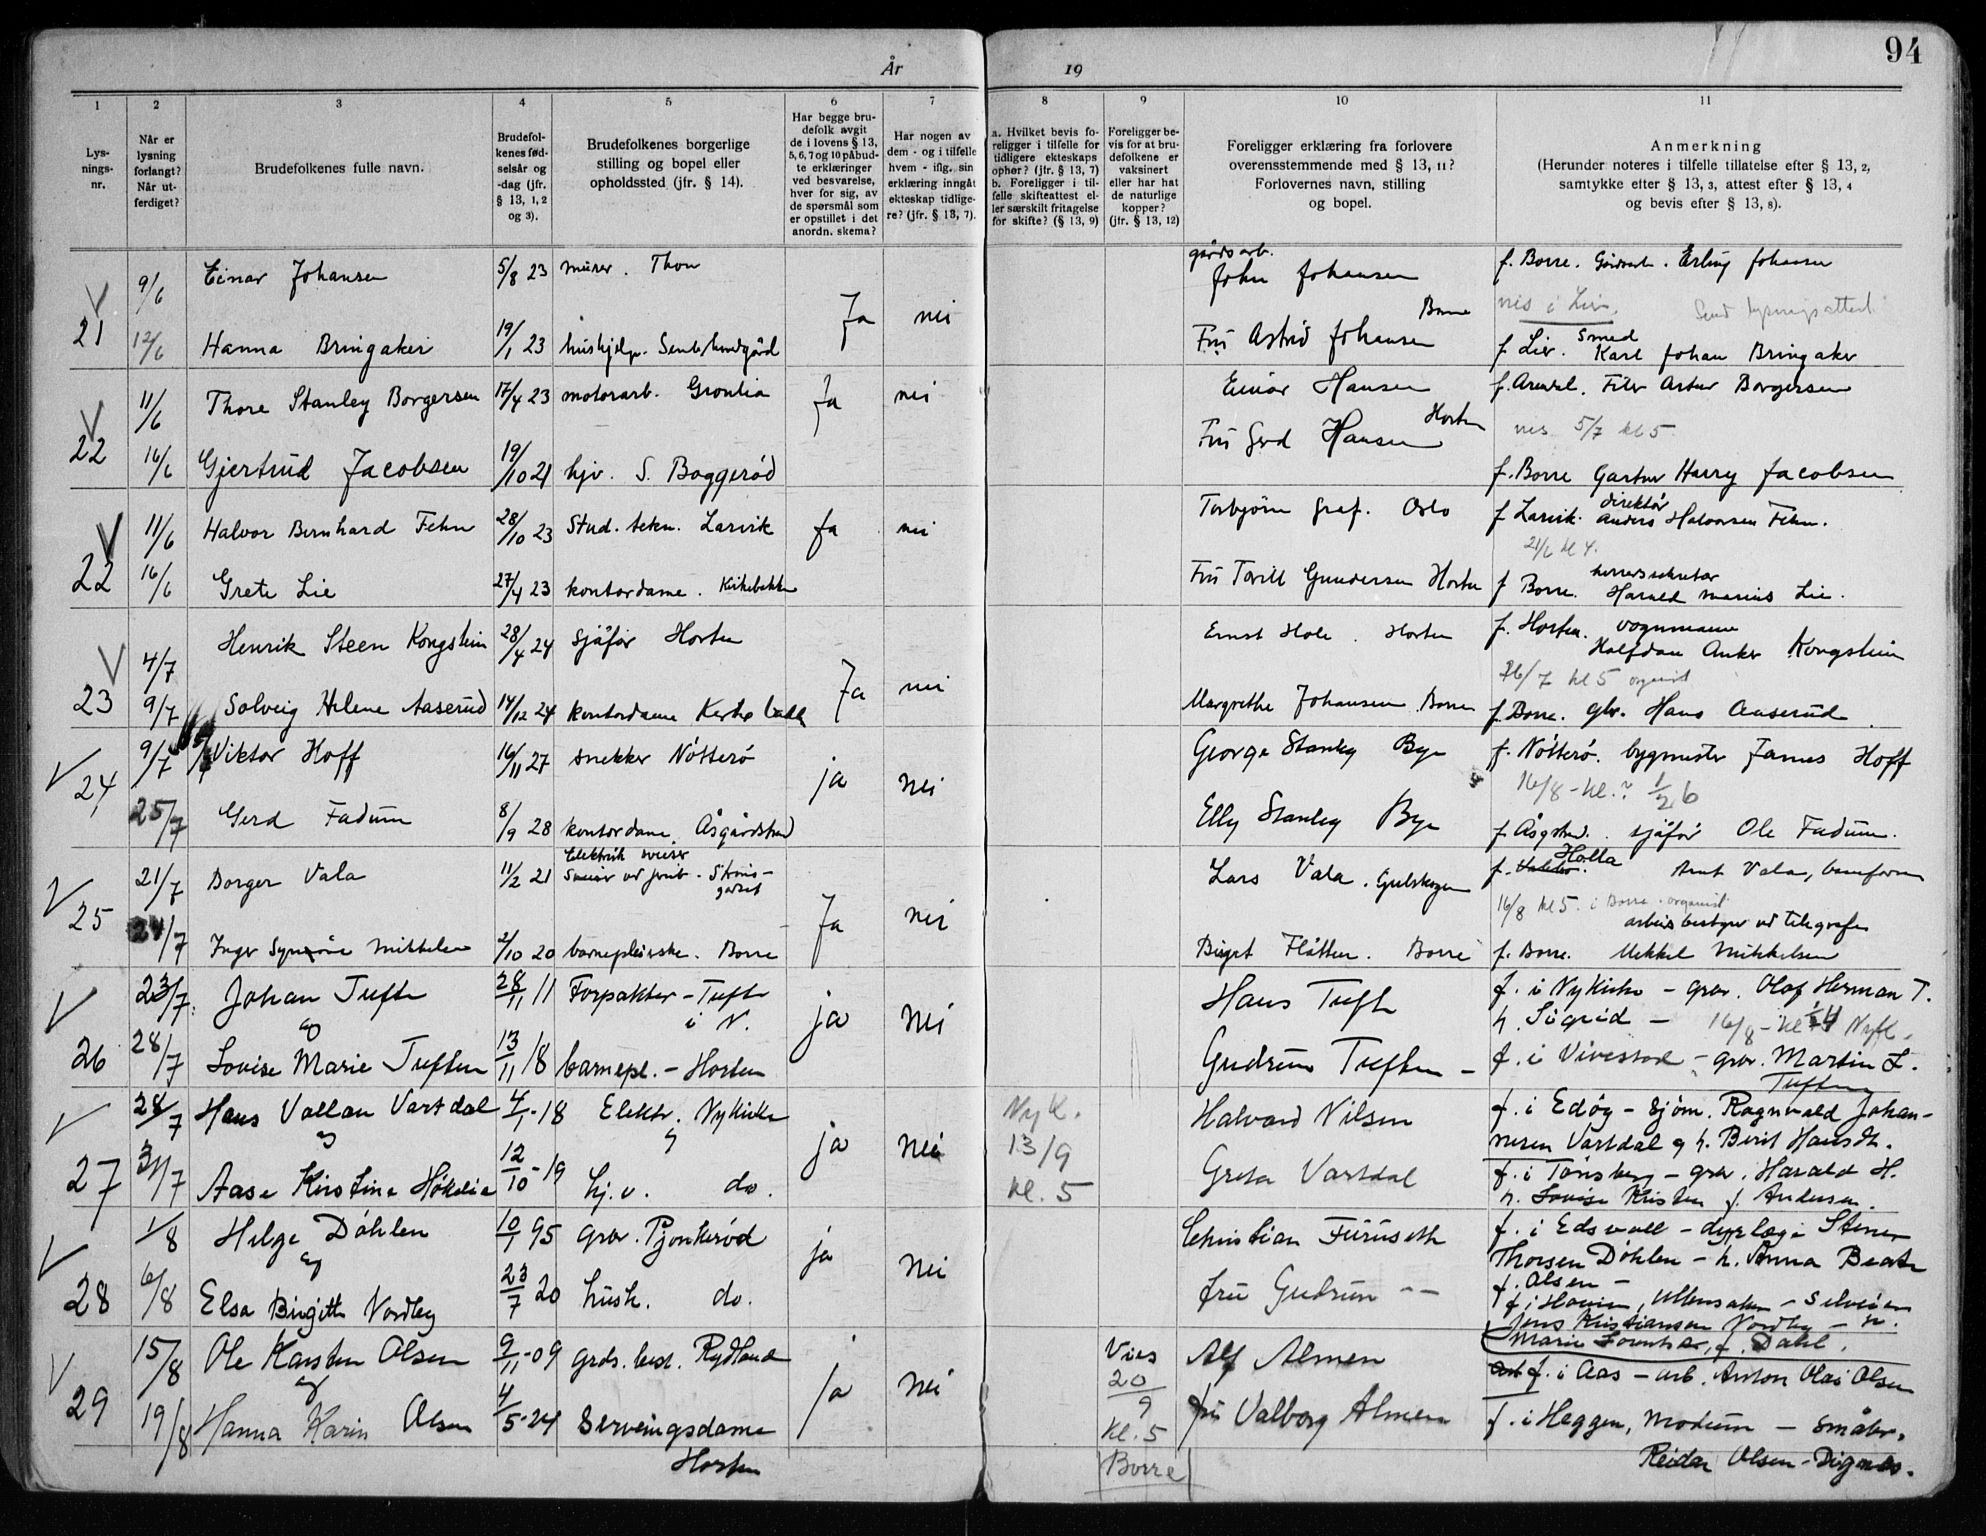 94
År 19
1 2 3 4 5 6 7 8 9 10 11
Lys-
nings-
nr.
Når er
lysning
forlangt?
Når ut-
ferdiget?
Brudefolkenes fulle navn.
Brudefol-
kenes fød-
selsår og
-dag (jfr.
§ 13, 1, 2
og 3).
Brudefolkenes borgerlige
stilling og bopel eller
opholdssted (jfr. § 14).
Har begge bru-
defolk avgit
de i lovens § 13,
5, 6, 7 og 10 påbud-
te erklæringer
ved besvarelse,
hver for sig, av
de spørsmål som
er opstillet i det
anordn. skema?
Har nogen av
dem - og i tilfelle
hvem - iflg. sin
erklæring inngåt
ekteskap tidlige-
re? (jfr. § 13, 7).
a. Hvilket bevis fo-
religger i tilfelle for
tidligere ekteskaps
ophør? (jfr. § 13, 7)
b. Foreligger i til-
felle skifteattest el-
ler særskilt fritagelse
for skifte? (§ 13, 9)
Foreligger be-
vis for at bru-
defolkene er
vaksinert
eller har hat
de naturlige
kopper?
(jfr. § 13, 12)
Foreligger erklæring fra forlovere
overensstemmende med § 13, 11?
Forlovernes navn, stilling
og bopel.
Anmerkning
(Herunder noteres i tilfelle tillatelse efter § 13, 2,
samtykke etter § 13, 3, attest efter § 13, 4
og bevis efter § 13, 8).
21 9/6 Einar Johansen 5/8 23 murer. Thon Ja nei gårdsarb. John Johansen Borre f. Borre. Gårdsarb. Erling Johansen
vies i Lier. Send lysningsattest
12/6 Hanna Bringaker 19/1 23 hushjelp. Fru Astrid Johansen f Lier. Smed Karl Johan Bringaker
22 11/6 Thore Stanley Borgersen 17/4 23 motorarb. Gronlia Ja nei Einar Hansen Horten f. Arendal. Filer Artur Borgersen
vies 5/7 kl 5
16/6 Gjertrud Jacobsen 19/10 21 hjv. S. Baggerød Fru Gerd Hansen f. Borre Gartner Harry Jacobsen
22 11/6 Halvor Bernhard Fehn 28/10 23 Stud. tekn. Larvik Ja nei Torbjørn Graf. Oslo f Larvik. direktør Anders Halvorsen Fehn.
21/6 kl 4.
16/6 Grete Lie 27/4 23 kontordame. Kirkebakken Fru Torill Gundersen Horten f Borre. herredssekretær Harald Marius Lie.
23 4/7 Henrik Steen Kongstein 28/4 24 Sjåfør Horten Ja nei Ernst Hole. Horten f. Horten. vognmann Halfdan Anker Kongstein
26/7 kl 5 organist
9/7 Solveig Helene Aaserud 14/12 24 kontordame Margrethe Johansen. Borre f. Borre. gbr. Hans Aaserud.
24 9/7 Viktor Hoff 16/11 27 snekker Nötterö ja nei George Stanley Bye f. Nötterö. bygmester James Hoff
16/8 - kl.? 1/2 6
25/7 Gerd Fadum 8/9 28 kontordame Åsgårdstrand Elly Stanley Bye f. Åsgstrd. sjåfør Ole Fadum.
25 21/7 Borger Vala 11/2 21 Elektrisk sveiser Ja nei Lars Vala. Gulskogen f. Holla Arnt Vala, baneform
16/8 kl 5. i Borre. organist
24/7 Inger Synnøve Mikkelsen 2/10 20 barnepleierske. Borre Birgit Flåtten. Borre f. Borre. arbeidsbestyrer ved Telegrafen Mekkel Mikkelsen
26 23/7 Johan Tufte 28/11 11 Forpakter - Tufte i N. ja nei Hans Tufte f. i Nykirke - grbr. Olaf Herman T.
og h. Sigrid - 16/8 - kl 1/2 4 Nyk.
28/7 Lovise Marie Tuften 13/11 18 barnepl. - Horten Gudrun Tuften - f. i Vivestad - grbr. Martin L. Tuften
27 28/7 Hans Vallan Vartdal 4/1-18 Elektr. Nykirke ja nei Nyk. 13/9 kl. 5 Halvard Nilsen f. i Edöy - Sjöm. Ragnvald Johan-
og nesen Vartdal og h. Berit Hansdt.
31/7 Aase Kirstine Høkelie 12/10-19 hj.v. do. Greta Vartdal f. i Tönsberg - grbr. Harald H.
h. Lovise Kristen f. Andersen
28 1/8 Helge Döhlen 10/1 95 grbr. Pjonkerød ja nei Christian Furuseth f. i Edsvoll - dyrlæge Steiner
og Thorsen Döhlen - h. Anna Beate
f. Olsen -
6/8 Elsa Birgitte Nordby 23/7 20 hush. do. fru Gudrun - - f. i Hovin, Ullensaker -
Jens Kristiansen Nordby - h.
Marie f. Dahl.
29 15/8 Ole Karsten Olsen 9/11-09 grds. best. Rydland ja nei Vies 20/9 kl. 5 Borre Alf Almen f. i Aas - arb. Anton Olai Olsen
og
19/8 Hanna Karin Olsen 4/5-24 Serveringsdame Horten fru Valborg Almen f. i Heggen, Modum - småbr.
Reidar Olsen - Digmas.